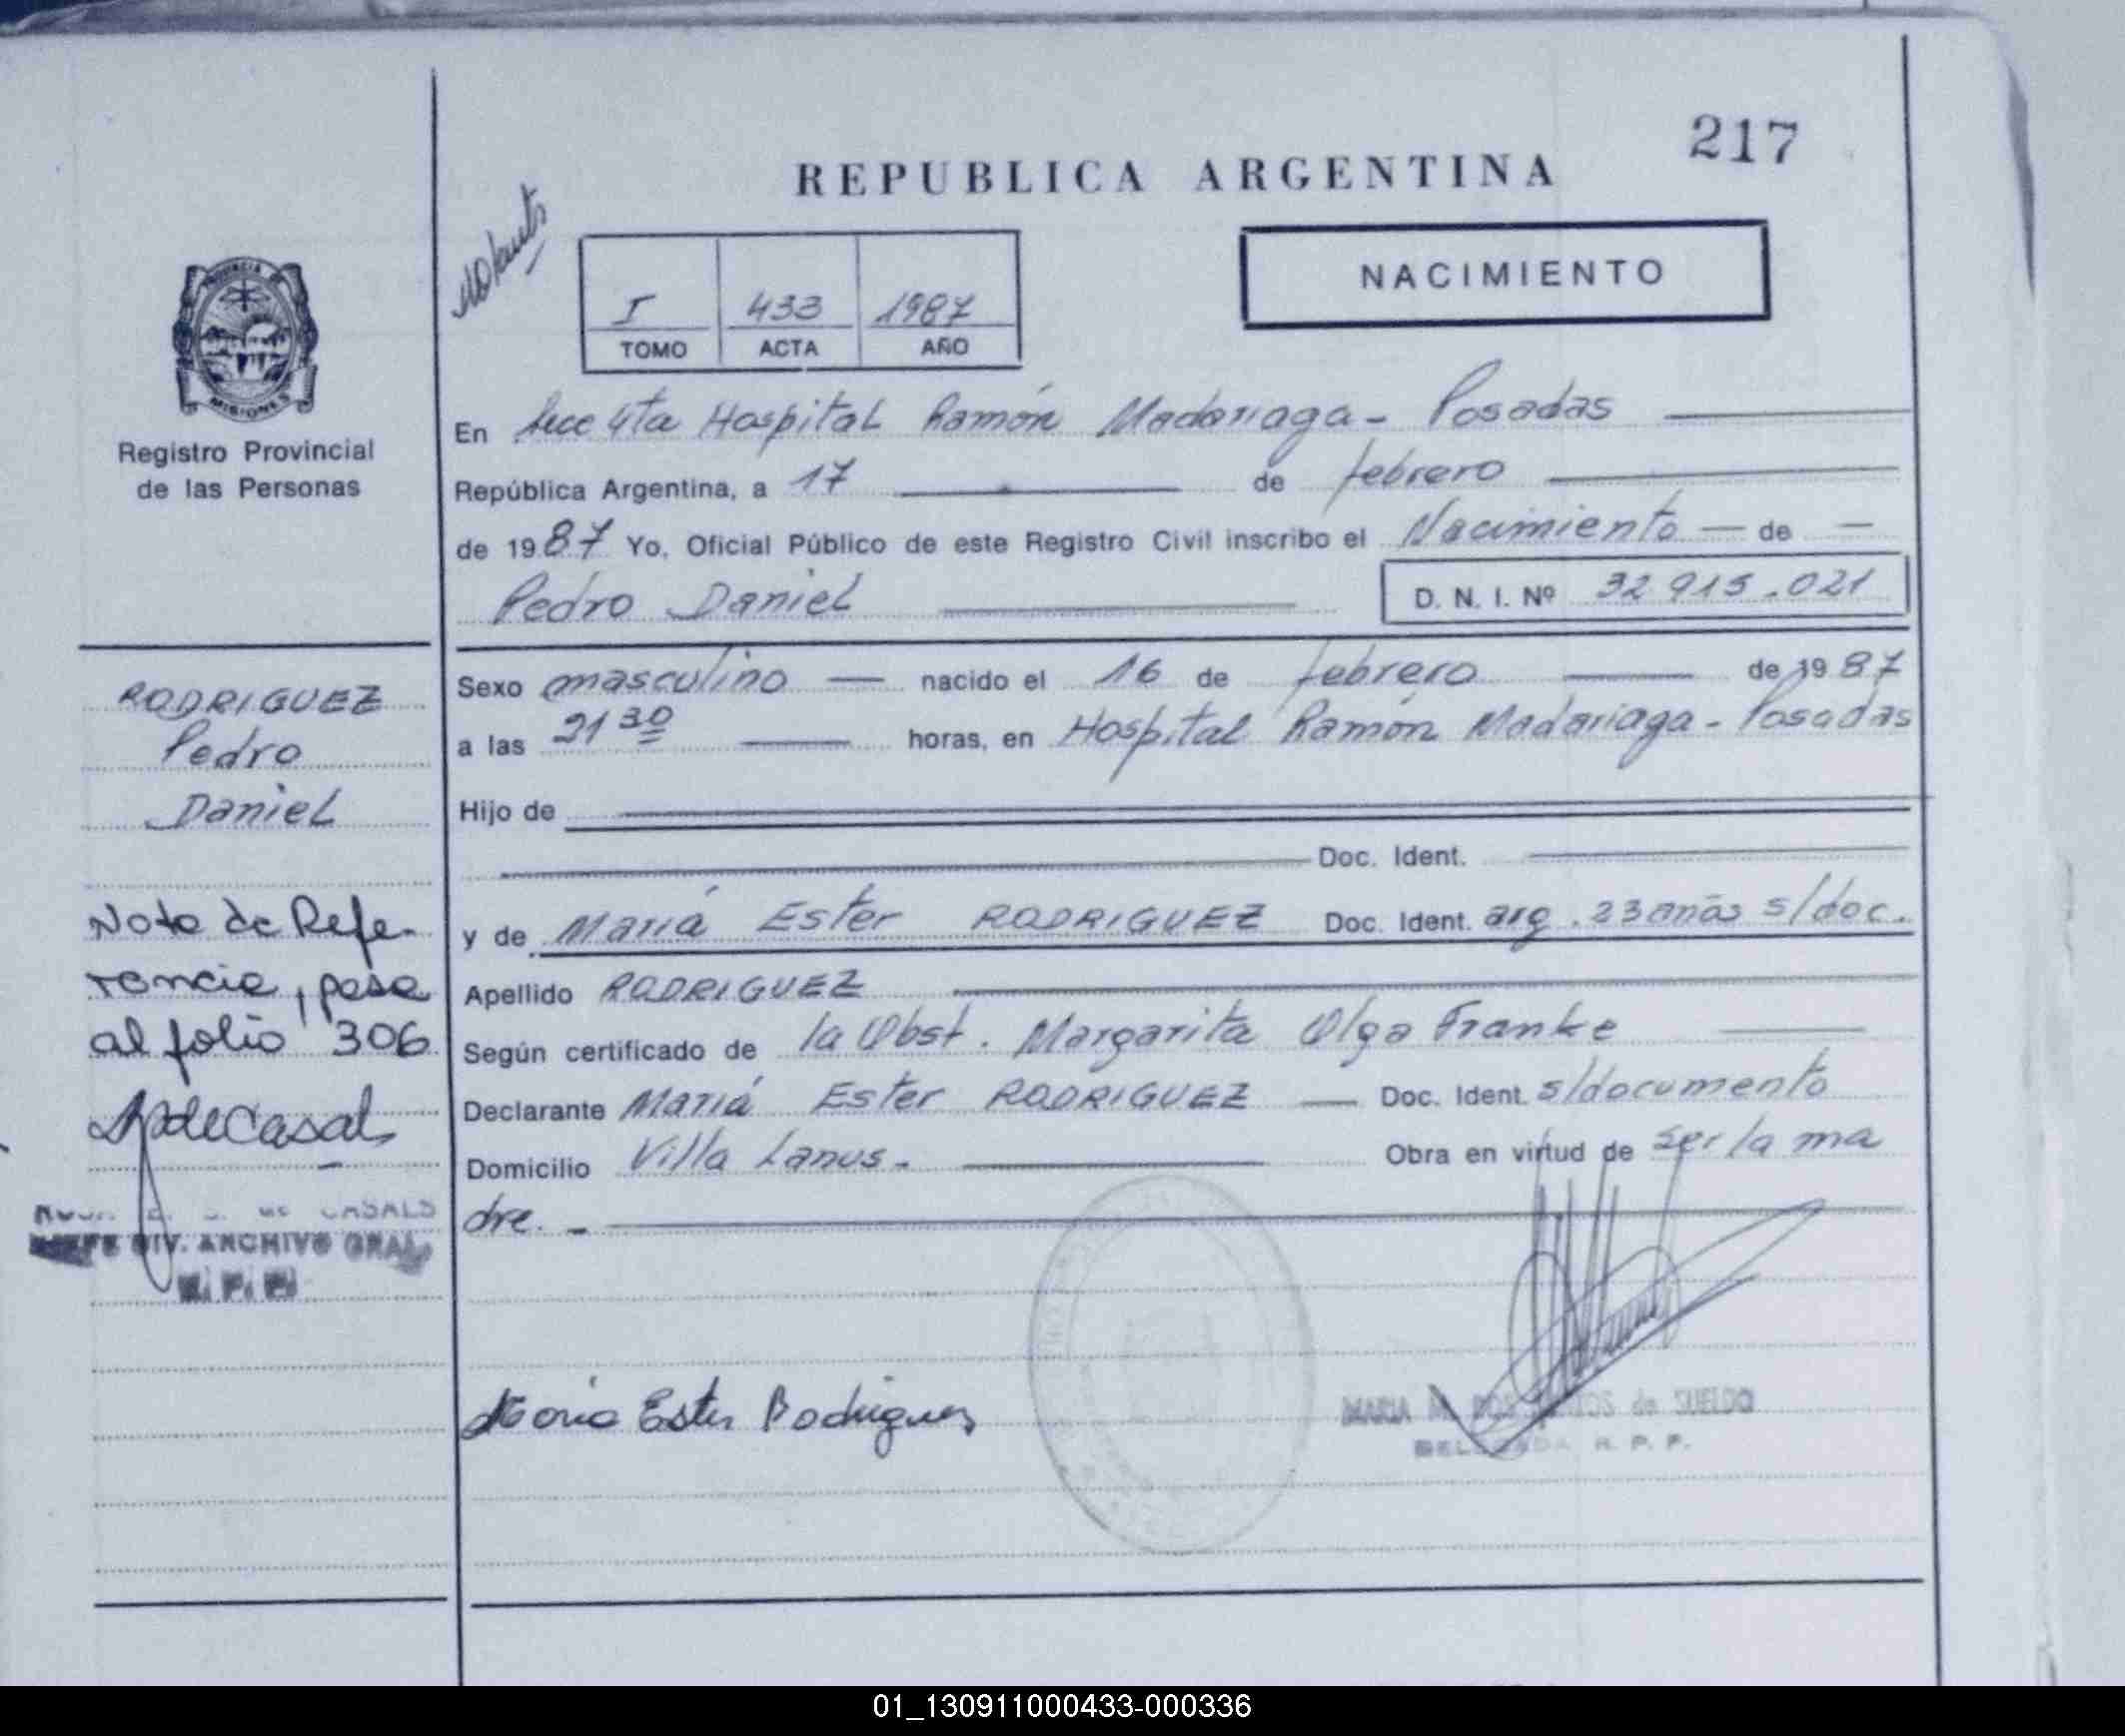 217
REPUBLICA ARGENTINA
NACIMIENTO
I 433 1987
TOMO ACTA AÑO
MISIONES
Registro Provincial
de las Personas
En Secc 4ta Hospital Ramón Madariaga - Posadas
República Argentina, a 17 de febrero
de 1987 Yo, Oficial Público de este Registro Civil inscribo el Nacimiento de
Pedro Daniel D. N. I. Nº 32 915.021
Sexo masculino nacido el 16 de febrero de 1987
a las 21 30 horas, en Hospital Ramón Madariaga - Posadas
Hijo de
Doc. Ident.
y de Mariá Ester RODRIGUEZ Doc. Ident. arg. 23 años s/doc.
Apellido RODRIGUEZ
Según certificado de la Obst. Margarita Olga Franke
Declarante Mariá Ester RODRIGUEZ Doc. Ident. s/documento
Domicilio Villa Lanus. Obra en virtud de ser la ma
dre.
María Ester Rodriguez
MARIA de SUELDO
R. P. P.
RODRIGUEZ
Pedro
Daniel
Nota de Refe-
rencia, pasa
al folio 306
de CASALS
JEFE DIV. ARCHIVO GRAL.
01_130911000433-000336